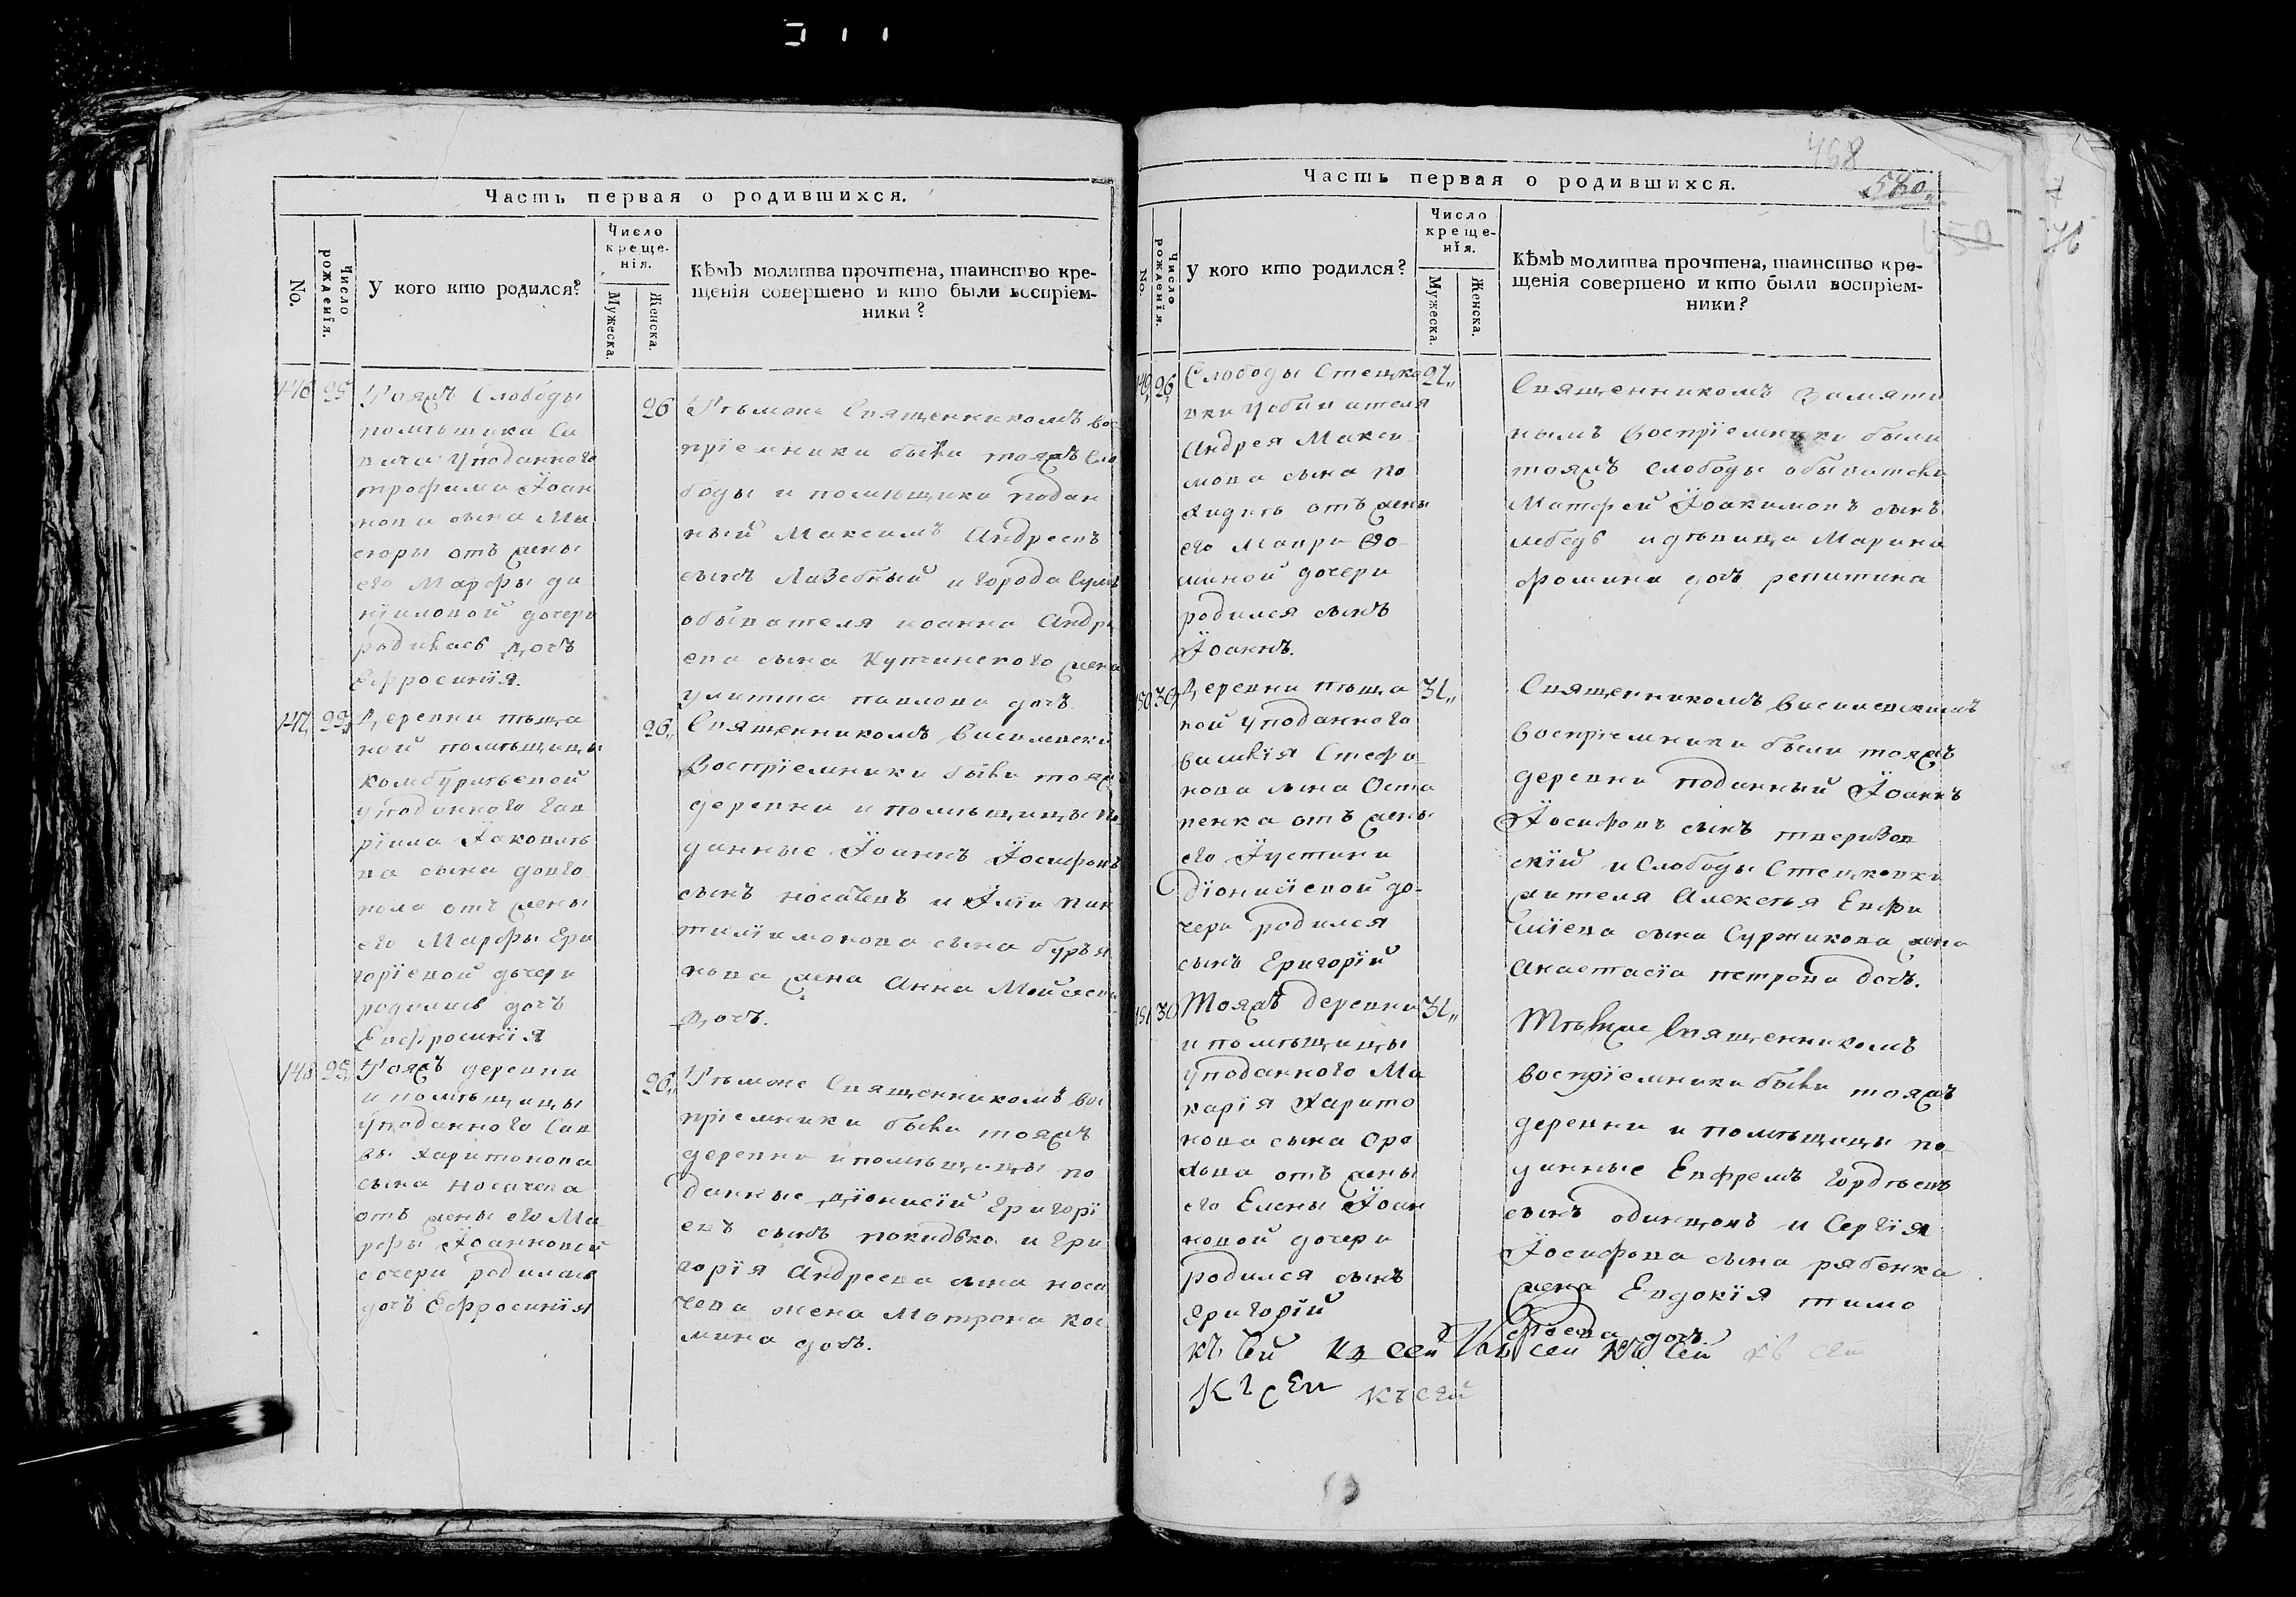 Часть первая о родившихся.
No.
Число рожденїя.
У кого кто родился?
Число
креще-
нїя.
Мужеска.
Женска.
Кѣмъ молитва прочтена, таинство кре-
щенїя совершено и кто были воспрїем-
ники?
146 25
Тояжъ Слободы
помѣщика Са
вича уподанного
трофима Їоан
нова сына Ма
отъ жены
его Марфы да
нїиловой дочери
родилась дочь
Ефросинїя.
26
Тѣмже Священникомъ вос
прїемники были тояжъ Сло
боды и помѣщика подан
ный Максимъ Андреевъ
сынъ Лазебный и города Сумъ
обывателя иоанна Андре
ева сына Кутинского жена
улитта павлова дочь
147 25
Деревни тыща
ной помѣщицы
комбурлѣевой
уподанного гав
рїила Їаковле
ва сына долго
пола отъ жены
его Марфы Гри
горїевой дочери
родилась дочь
Евфросинїя
26
Священникомъ Василевским
Воспрїемники были тояж
деревни и помѣщицы по
данные Їоаннъ Їосифовъ
сынъ носачевъ и Їлїи пан
тилїимонова сына буръя
нова жена Анна Мойсеева
Дочь.
148 25
Тояжъ деревни
и помѣщицы
уподанного Сав
вы харитонова
сына носачева
отъ жены его Ма
рфы Їоанновой
дочери родилась
дочь Ефросинїя
26
Тѣмже Священникомъ вос
прїемники были тояжъ
деревни и помѣщицы по
данные Дїонисїй Григорї
евъ сынъ покидько и Гри
горїя Андреева сына носа
чева жена Матрона Кос
мина дочь.
468
580
Часть первая о родившихся.
No.
Число рожденїя.
У кого кто родился?
Число
креще-
нїя.
Мужеска.
Женска.
Кѣмъ молитва прочтена, таинство кре-
щенїя совершено и кто были воспрїем-
ники?
149 26
Слободы Стецко
вки уобывателя
Андрея Макси
мова сына по
отъ жены
его Мавры Фо
миной дочери
родился сынъ
Їоаннъ.
27
Священникомъ Замяти
нымъ Воспрїемники были
тояжъ слободы обыватели
Матфей Їоакимовъ сынъ
лебедь и дѣвица Марина
фомина дочь репитина
150 30
Деревни тыща
ной уподанного
василїя Стефа
нова сына Оста
пенка отъ жены
его Їустины
Дїонисїевой до-
чери родился
сынъ Григорїй
31
Священникомъ Василевскимъ
воспрїемники были тояжъ
деревни поданный Їоаннъ
Їосифовъ сынъ тверизов
скїй и Слободы Стецковки
жителя Алексѣя Евфи
мїева сына Суржикова жена
Анастасїа петрова дочь.
151 30
Тояжъ деревни
и помѣщицы
уподанного Ма
карїя Харито
нова сына Оре
хова отъ жены
его Елены Їоан
новой дочери
родился сынъ
Григорїй
31
Тѣмже Священникомъ
воспрїемники были тояжъ
деревни и помѣщицы по-
данные Евфремъ Гордѣевъ
сынъ одинцовъ и Сергїя
Їосифова сына рябенка
жена Евдокїя тимо
фѣева дочь.
къ сей къ сей къ сей къ сей къ сей
къ сей къ сей